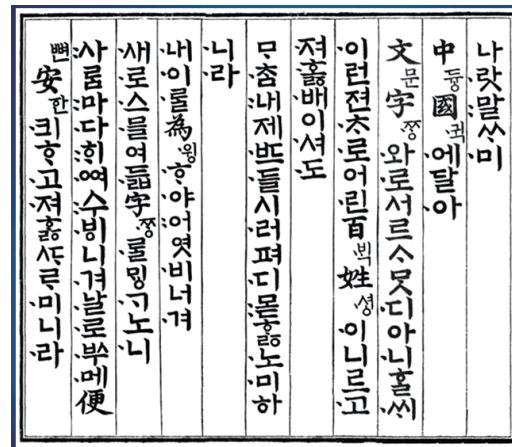 나랏말ᄊᆞ미
中듕國귁에달아
文문字ᄍᆞᆼ와로서르ᄉᆞᄆᆞᆺ디아니ᄒᆞᆯᄊᆡ
이런젼ᄎᆞ로어린百ᄇᆡᆨ姓셩이니르고
져호ᇙ배이셔도
ᄆᆞᄎᆞᆷ내제ᄠᅳ들시러펴디몯ᄒᆞᇙ노미하
니라
내이ᄅᆞᆯ為윙ᄒᆞ야어엿비너겨
새로스믈여듧字ᄍᆞᆼᄅᆞᆯᄆᆡᇰᄀᆞ노니
사ᄅᆞᆷ마다ᄒᆡᅇᅧ수ᄫᅵ니겨날로ᄡᅮ메便
뼌安한킈ᄒᆞ고져ᄒᆞᇙᄯᆞᄅᆞ미니라